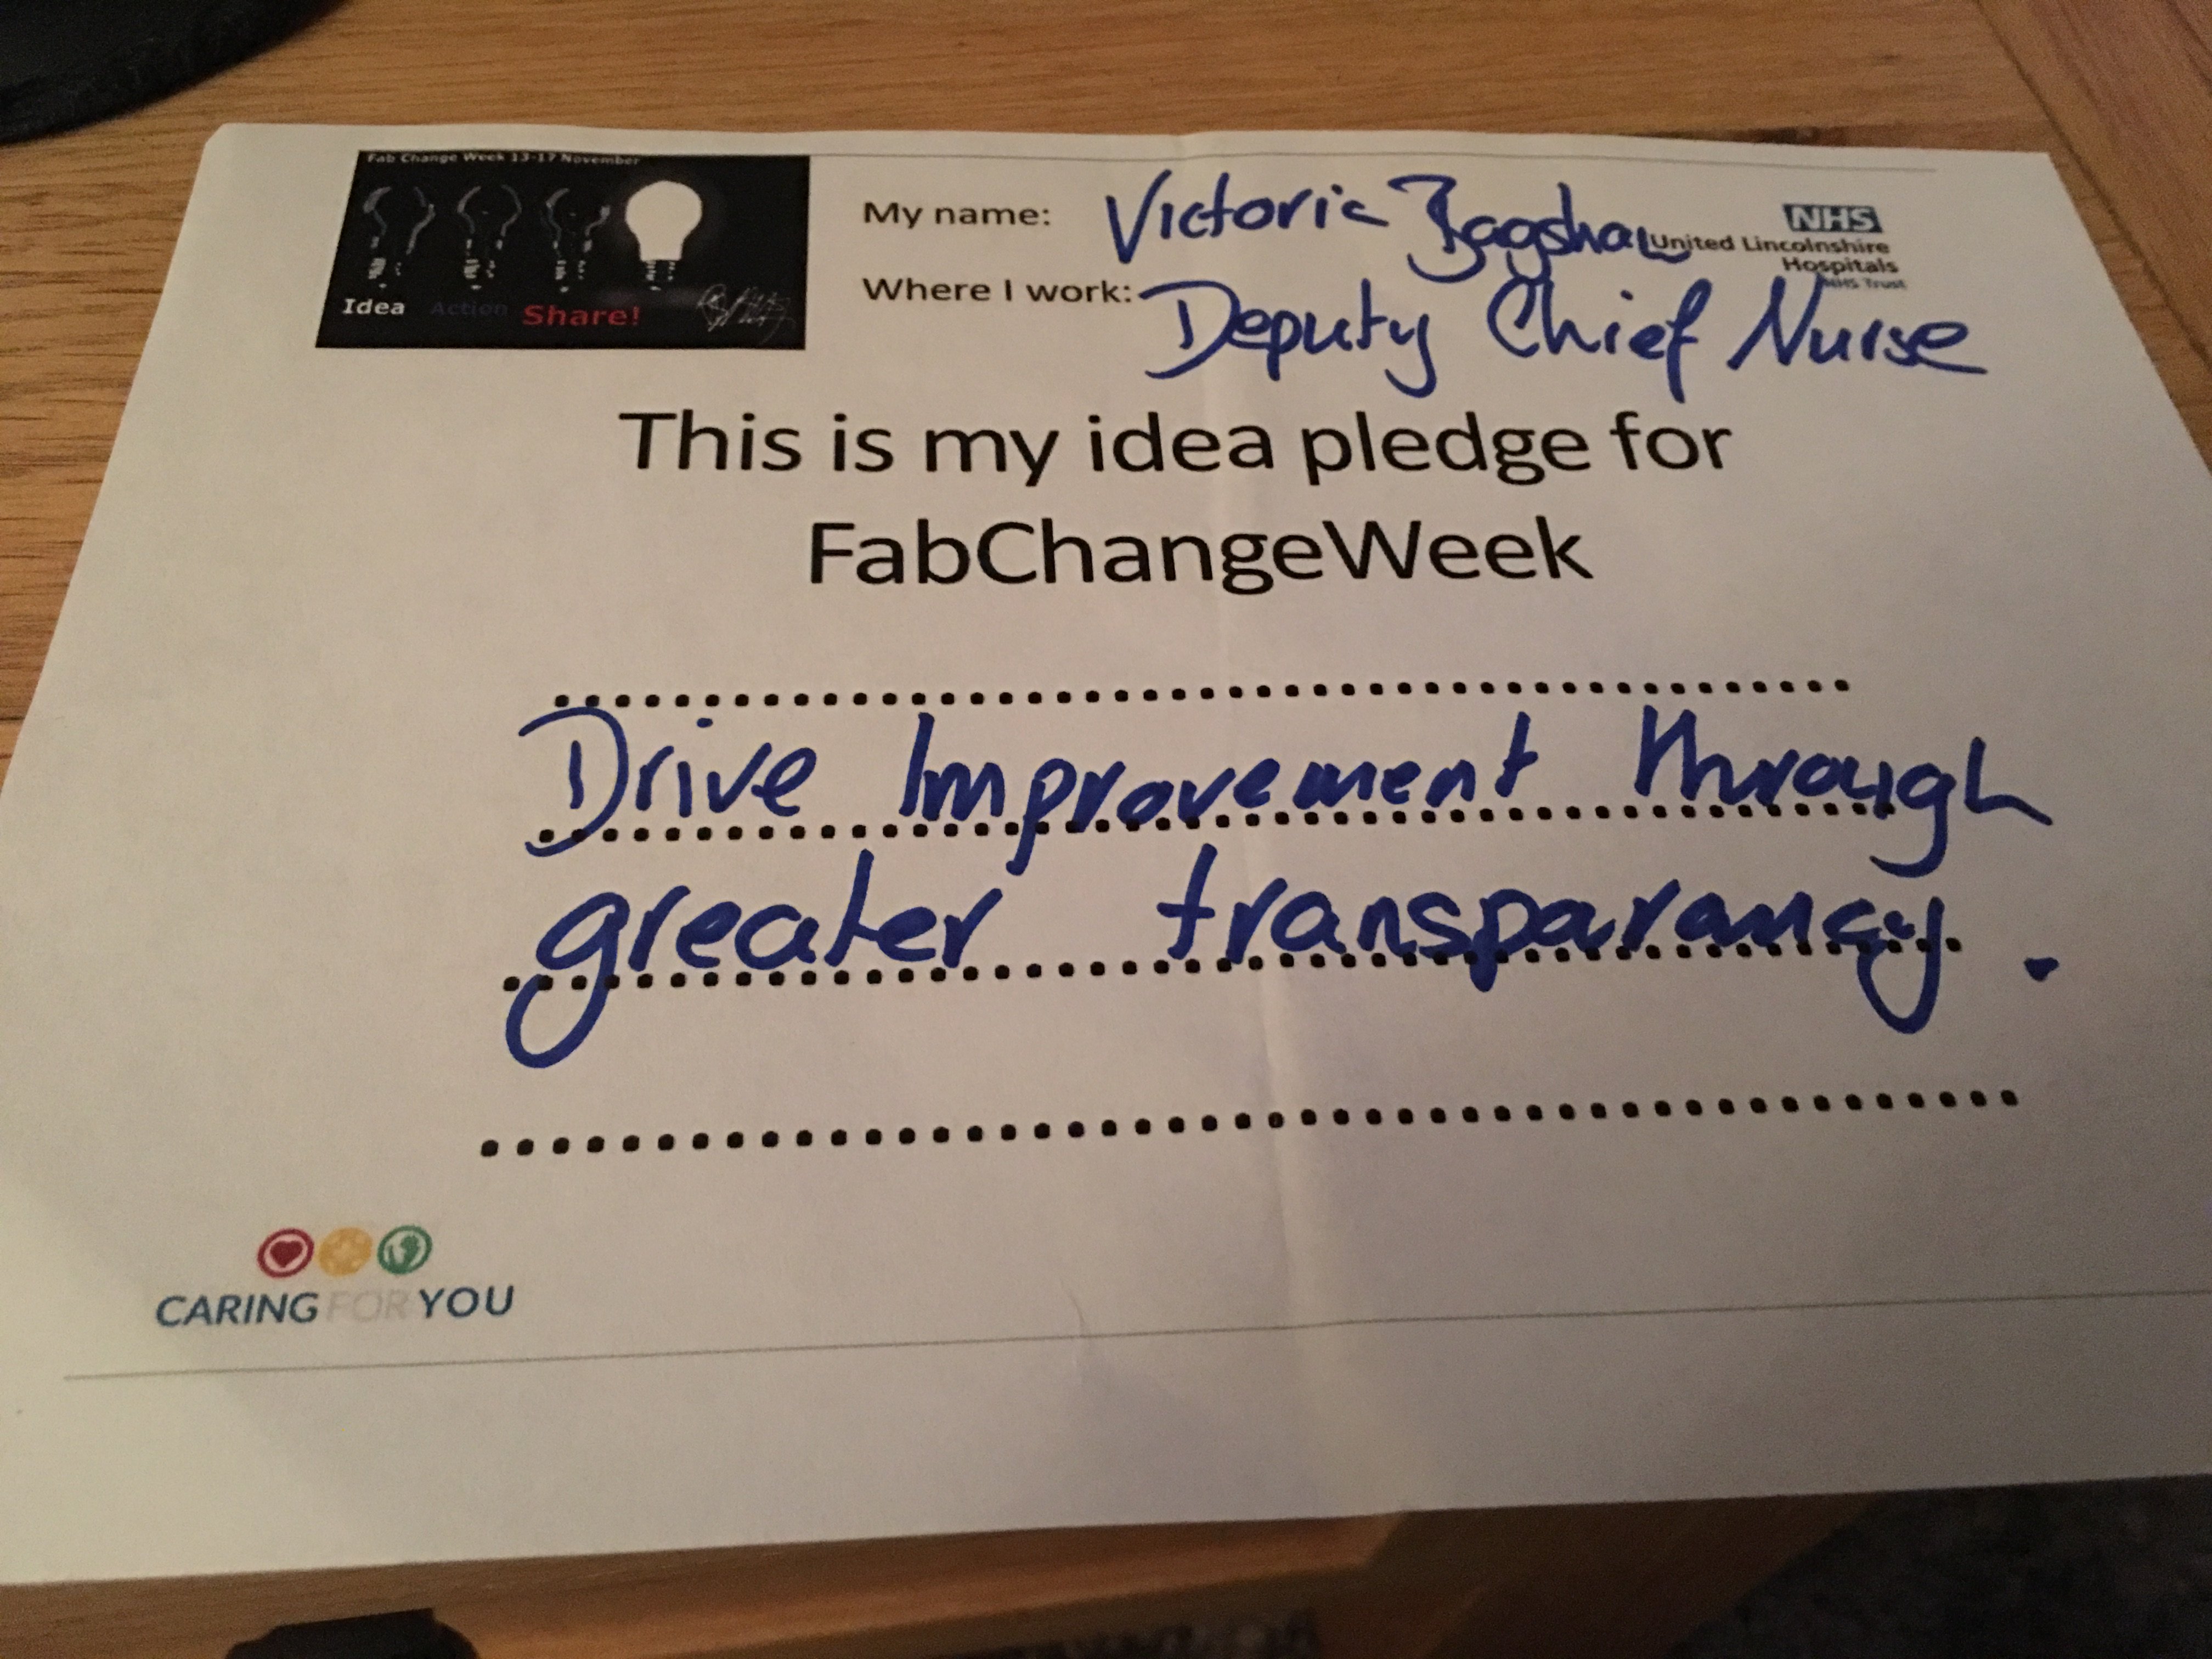 Fab Change Week 13-17 November
Idea Action Share!
My name: Victoria Bagshaw
NHS
United Lincolnshire
Hospitals
NHS Trust
Where I work: Deputy Chief Nurse
This is my idea pledge for
FabChangeWeek
Drive Improvement through
greater transparancy.
CARING FOR YOU